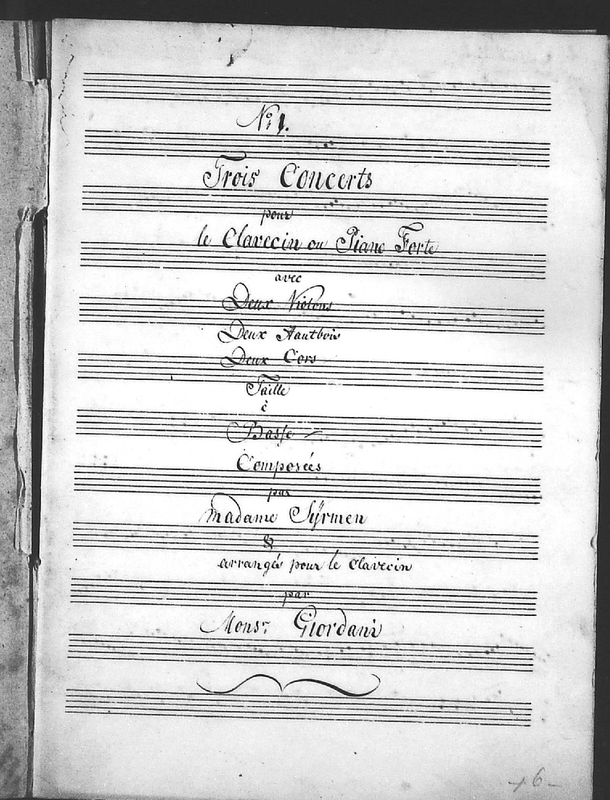 No: 1.
Trois Concerts
pour
le Clavecin ou Piano Forte
avec
Deux Violons
Deux Hautbois
Deux Cors
Taille
è
Basse
Composées
par
Madame Sÿrmen
&
arrangés pour le Clavecin
par
Monsr. Giordani
6